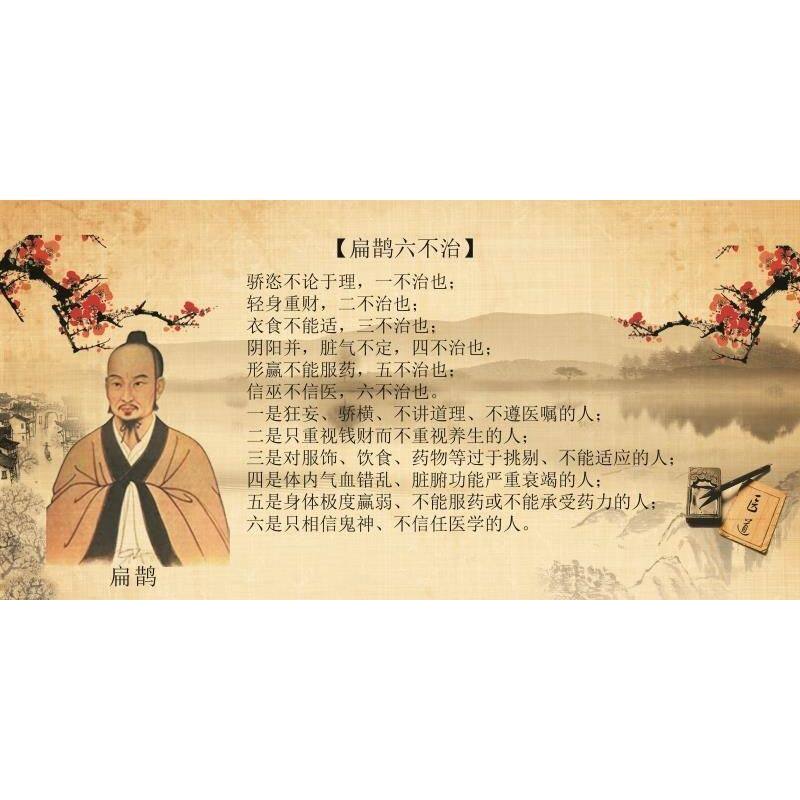 【扁鹊六不治】
骄恣不论于理，一不治也；
轻身重财，二不治也；
衣食不能适，三不治也；
阴阳并，脏气不定，四不治也；
形赢不能服药，五不治也；
信巫不信医，六不治也。
一是狂妄、骄横、不讲道理、不遵医嘱的人；
二是只重视钱财而不重视养生的人；
三是对服饰、饮食、药物等过于挑剔、不能适应的人；
四是体内气血错乱、脏腑功能严重衰竭的人；
五是身体极度赢弱、不能服药或不能承受药力的人；
六是只相信鬼神、不信任医学的人。
扁鹊
医道